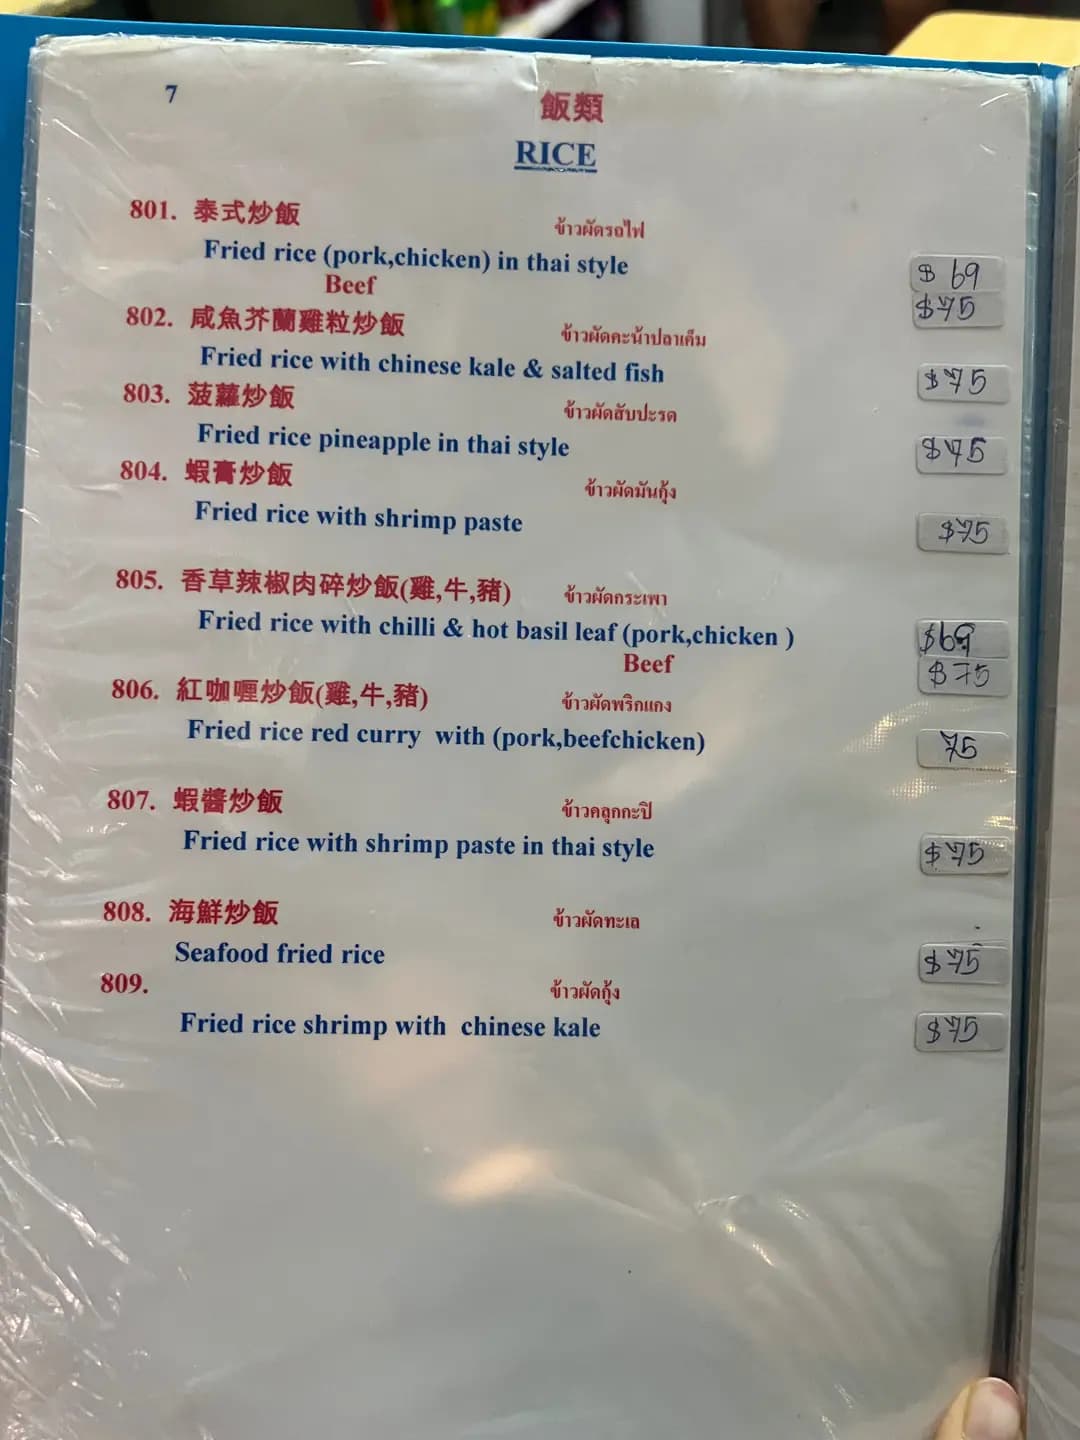 7
飯類
RICE
801. 泰式炒飯 ข้าวผัดรถไฟ
Fried rice (pork,chicken) in thai style $ 69
Beef $75
802. 咸魚芥蘭雞粒炒飯 ข้าวผัดคะน้าปลาเค็ม
Fried rice with chinese kale & salted fish $75
803. 菠蘿炒飯 ข้าวผัดสับปะรด
Fried rice pineapple in thai style $75
804. 蝦膏炒飯 ข้าวผัดมันกุ้ง
Fried rice with shrimp paste $75
805. 香草辣椒肉碎炒飯(雞,牛,豬) ข้าวผัดกระเพา
Fried rice with chilli & hot basil leaf (pork,chicken ) $69
Beef $75
806. 紅咖喱炒飯(雞,牛,豬) ข้าวผัดพริกแกง
Fried rice red curry with (pork,beefchicken) 75
807. 蝦醬炒飯 ข้าวคลุกกะปิ
Fried rice with shrimp paste in thai style $75
808. 海鮮炒飯 ข้าวผัดทะเล
Seafood fried rice $75
809. ข้าวผัดกุ้ง
Fried rice shrimp with chinese kale $75